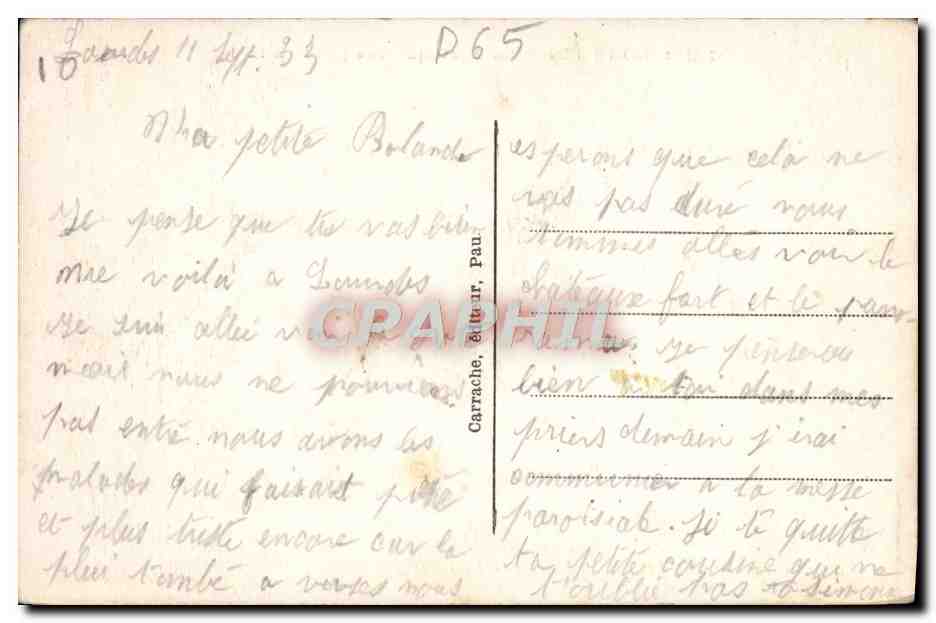 Lourdes 11 Sept. 33
10
D65
Ma petite Rolande
Je pense que tu vas bien
me voilà a Lourdes
Je suis allée
mais nous ne pouvions
pas entré nous avons les
malades qui faisait pitié
et plus triste encore car la
plui tombé a verses nous
Carrache, éditeur, Pau
CPAPHIL
esperons que cela ne
vas pas duré nous
sommes allés voir le
châteaux fort et le
Je penserai
bien a toi dans mes
priers demain j'irai
communier a la messe
paroisiale. Je te quitte
ta petite cousine qui ne
t'oublie pas Simone